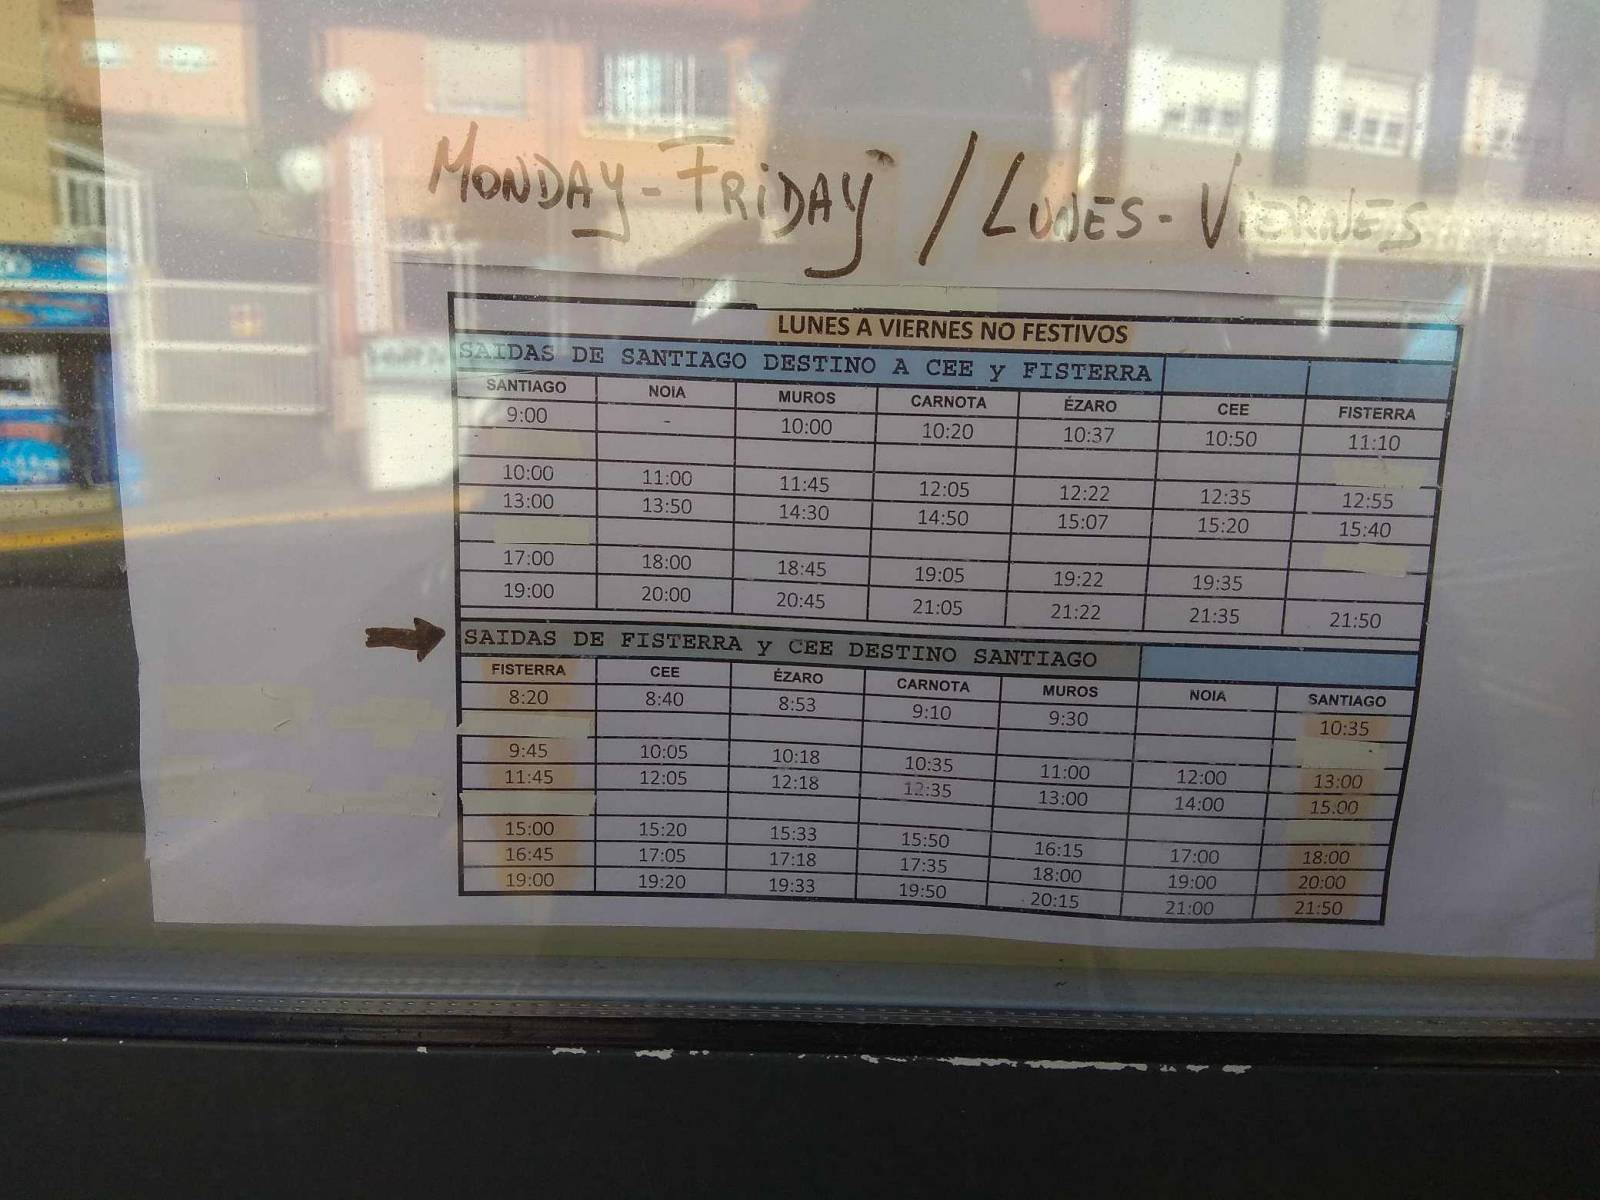 MONDAY-FRIDAY / LUNES-VIERNES
LUNES A VIERNES NO FESTIVOS
SAIDAS DE SANTIAGO DESTINO A CEE y FISTERRA
SANTIAGO NOIA MUROS CARNOTA ÉZARO CEE FISTERRA
9:00 - 10:00 10:20 10:37 10:50 11:10
10:00 11:00 11:45 12:05 12:22 12:35 12:55
13:00 13:50 14:30 14:50 15:07 15:20 15:40
17:00 18:00 18:45 19:05 19:22 19:35
19:00 20:00 20:45 21:05 21:22 21:35 21:50
SAIDAS DE FISTERRA y CEE DESTINO SANTIAGO
FISTERRA CEE ÉZARO CARNOTA MUROS NOIA SANTIAGO
8:20 8:40 8:53 9:10 9:30 10:35
9:45 10:05 10:18 10:35 11:00 12:00 13:00
11:45 12:05 12:18 12:35 13:00 14:00 15:00
15:00 15:20 15:33 15:50 16:15 17:00 18:00
16:45 17:05 17:18 17:35 18:00 19:00 20:00
19:00 19:20 19:33 19:50 20:15 21:00 21:50